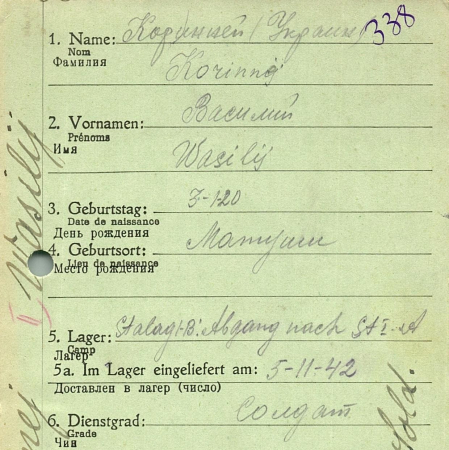 338
1. Name: Коринней (Украин)
Nom
Фамилия
Korinnój
Василий
2. Vornamen:
Prénoms
Имя
Wasilij
3. Geburtstag: 3-1-20
Date de naissance
День рождения
4. Geburtsort: Матуши
Lieu de naissance
Место рождения
5. Lager: Stalag I-B. Abgang nach St I-A
Camp
Лагерь
5a. Im Lager eingeliefert am: 5-11-42
Доставлен в лагерь (число)
6. Dienstgrad: Солдат
Grade
Чин
Wasilij
Sold.